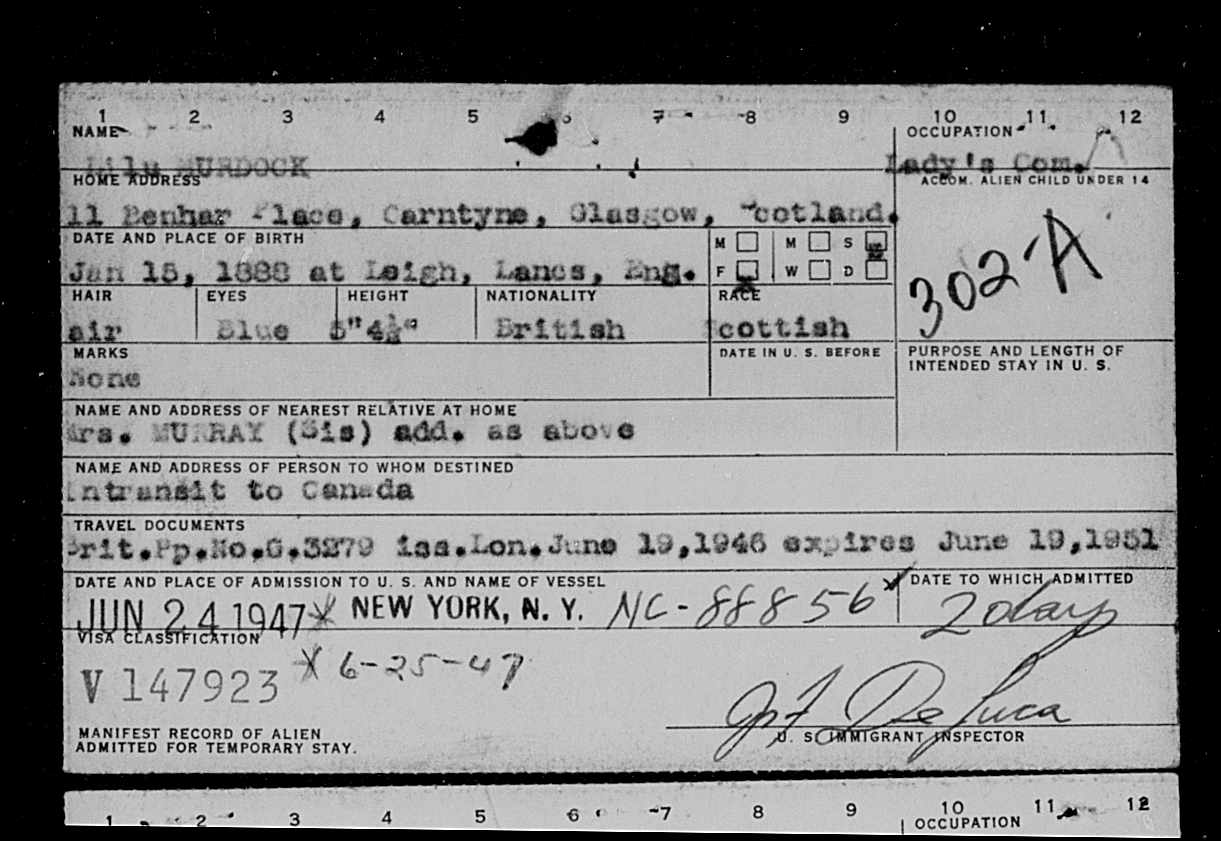 1 2 3 4 5 6 7 8 9 10 11 12
NAME OCCUPATION
Lily MURDOCK Lady's Com.
HOME ADDRESS ACCOM. ALIEN CHILD UNDER 14
11 Benhar Place, Carntyne, Glasgow, Scotland.
302-A
DATE AND PLACE OF BIRTH M M S
Jan 15, 1888 at Leigh, Lancs, Eng. F W D
HAIR EYES HEIGHT NATIONALITY RACE
air Blue 5"4½" British Scottish
MARKS DATE IN U. S. BEFORE PURPOSE AND LENGTH OF
INTENDED STAY IN U. S.
None
NAME AND ADDRESS OF NEAREST RELATIVE AT HOME
Mrs. MURRAY (Sis) add. as above
NAME AND ADDRESS OF PERSON TO WHOM DESTINED
Intransit to Canada
TRAVEL DOCUMENTS
Brit.Pp.No.G.3279 iss.Lon.June 19,1946 expires June 19,1951
DATE AND PLACE OF ADMISSION TO U. S. AND NAME OF VESSEL DATE TO WHICH ADMITTED
JUN 24 1947 * NEW YORK, N. Y. NC-88856 2 days
VISA CLASSIFICATION
V 147923 * 6-25-47
Jos F De Luca
MANIFEST RECORD OF ALIEN U. S. IMMIGRANT INSPECTOR
ADMITTED FOR TEMPORARY STAY.
1 2 3 4 5 6 7 8 9 10 11 12
OCCUPATION